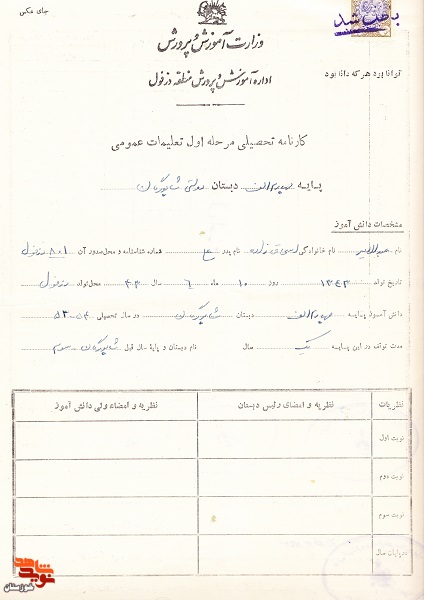 جای عکس
باطل شد
وزارت آموزش و پرورش
توانا بود هر که دانا بود
اداره آموزش و پرورش منطقه دزفول
کارنامه تحصیلی مرحله اول تعلیمات عمومی
پایه چهارم الف دبستان دولتی شاپورگان
مشخصات دانش آموز
نام عبدالامیر نام خانوادگی نام پدر شماره شناسنامه و محل صدور آن ۸۰۱ دزفول
تاریخ تولد ۱۳۴۳ روز ۱۰ ماه ۶ سال ۴۳ محل تولد دزفول
دانش آموز پایه چهارم الف دبستان شاپورگان در سال تحصیلی ۵۴-۵۳
مدت توقف در این پایه یک سال نام دبستان و پایه سال قبل شاپورگان - سوم
نظریات نظریه و امضای رئیس دبستان نظریه و امضاء ولی دانش آموز
نوبت اول
نوبت دوم
نوبت سوم
در پایان سال
نوید شاهد
خوزستان